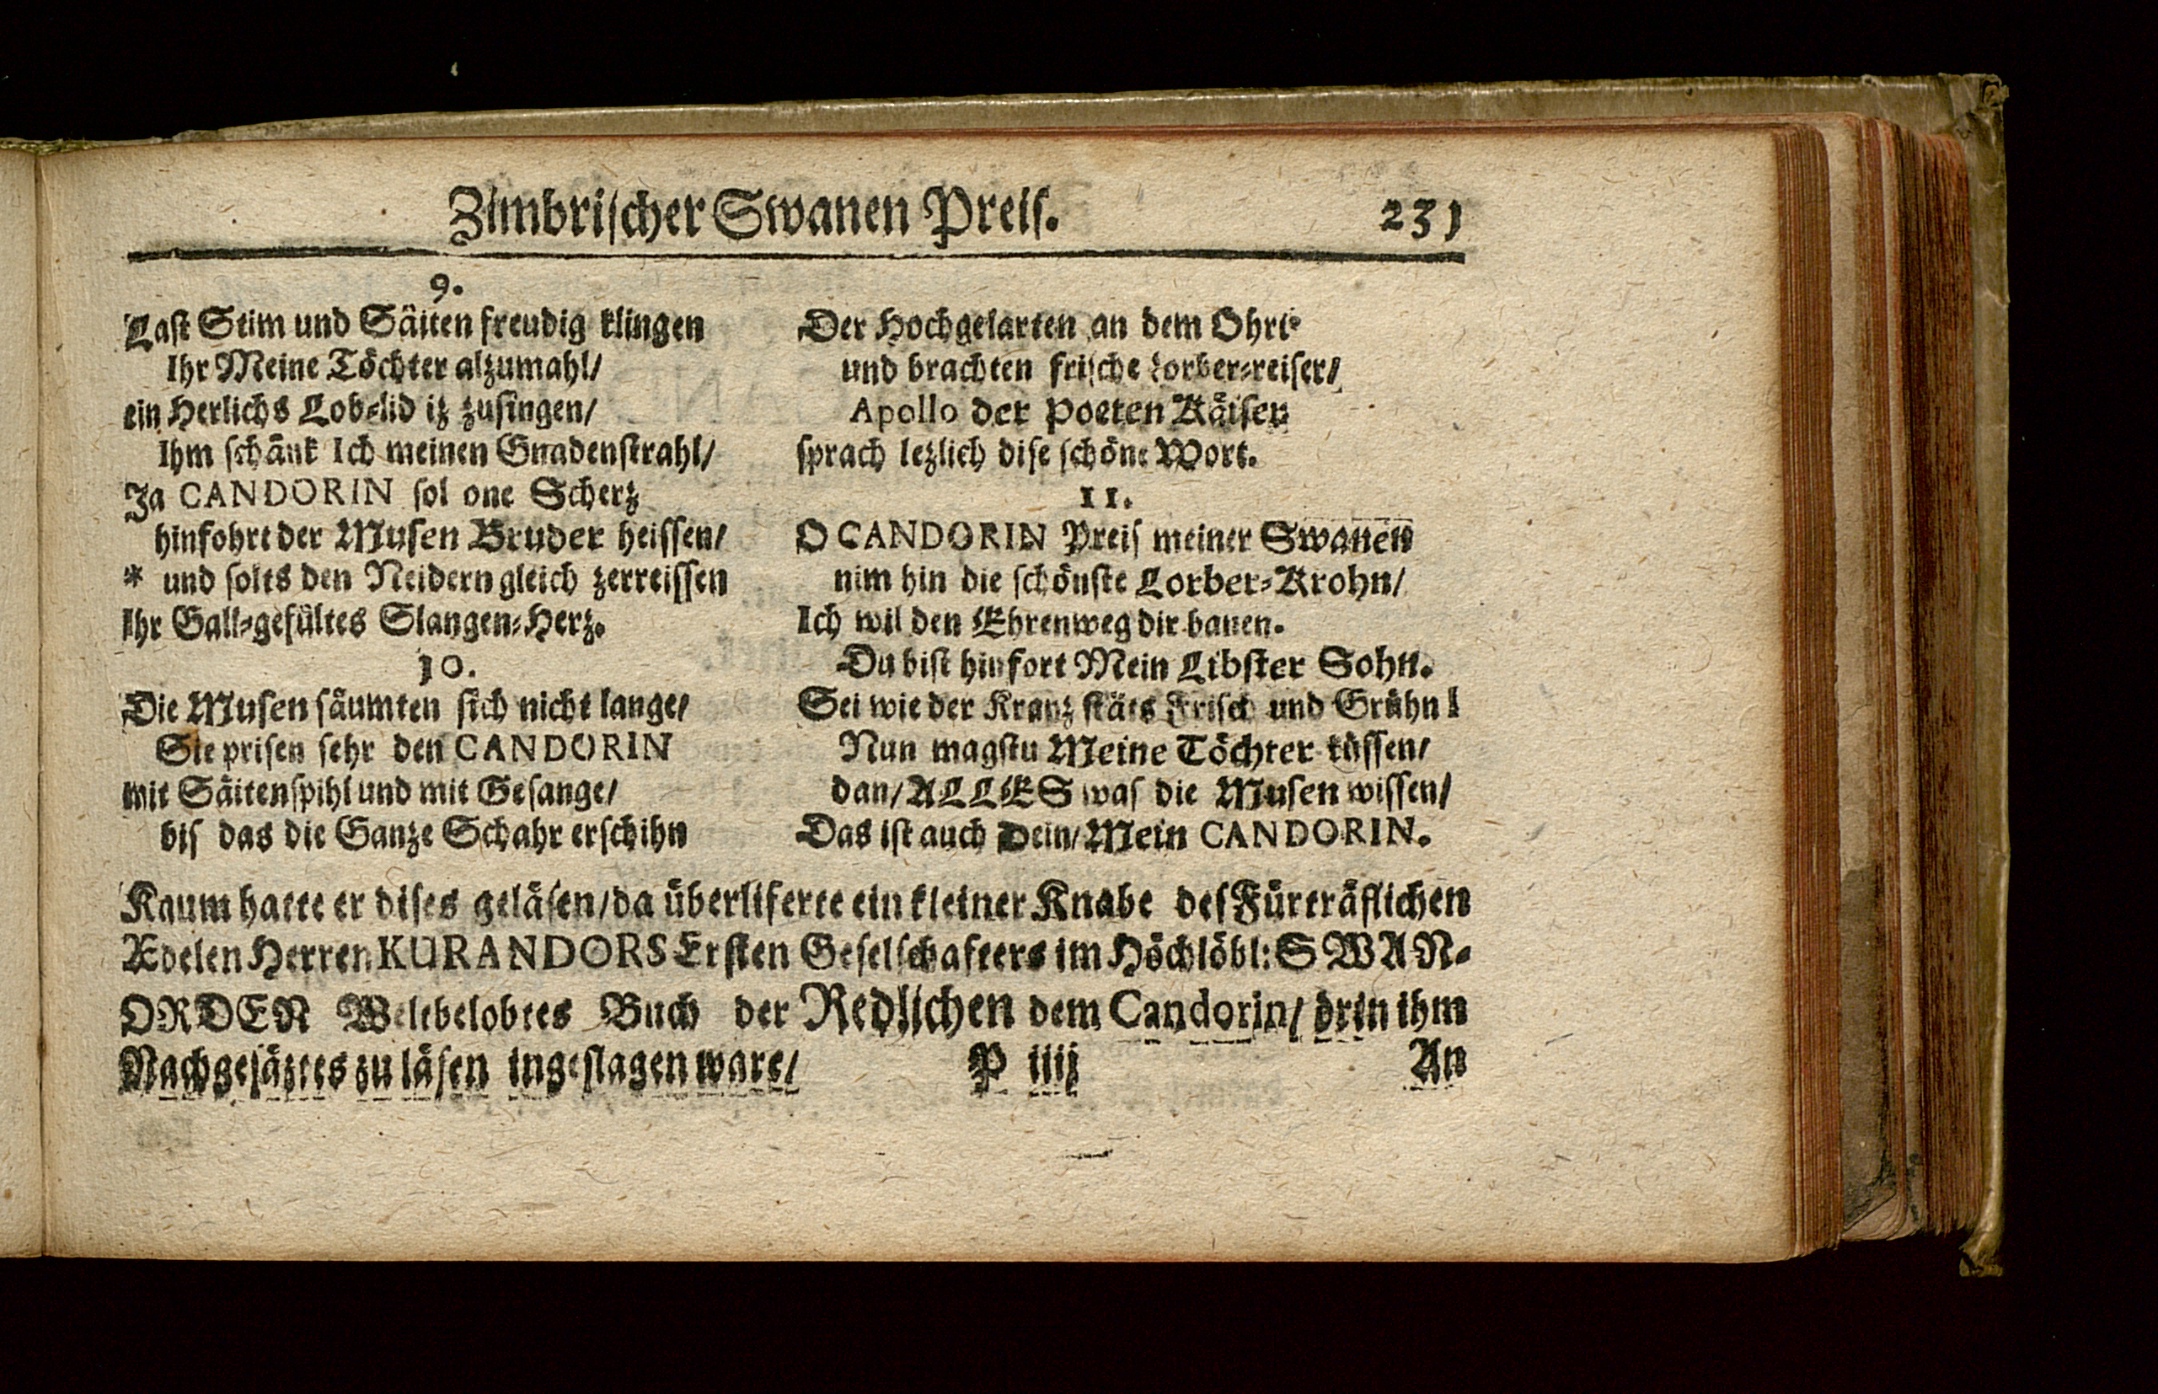 Zimbriſcher Swanen Preiſ. 231
9.
Laſt Stim und Säiten freudig klingen
Ihr Meine Töchter alzumahl/
ein Herlichs Lob-lid iz zuſingen/
Ihm ſchänk Ich meinen Gnadenſtrahl/
Ja CANDORIN ſol one Scherz
hinfohrt der Muſen Bruder heiſſen/
* und ſolts den Neidern gleich zerreiſſen
Ihr Gall-gefültes Slangen-Herz.
10.
Die Muſen ſäumten ſich nicht lange/
Sie priſen ſehr den CANDORIN
mit Säitenſpihl und mit Geſange/
biſ das die Ganze Schahr erſchihn
Der Hochgelarten an dem Ohrt
und brachten friſche Lorber-reiſer/
Apollo der Poeten Käiſer
ſprach lezlich diſe ſchöne Wort.
11.
O CANDORIN Preiſ meiner Swanen
nim hin die ſchönſte Lorber-Krohn/
Ich wil den Ehrenweg dir banen.
Du biſt hinfort Mein Libſter Sohn.
Sei wie der Kranz ſtäts Friſch und Grühn!
Nun magſtu Meine Töchter küſſen/
dan/ ALLES was die Muſen wiſſen/
Das iſt auch Dein/ Mein CANDORIN.
Kaum hatte er diſes geläſen/ da überliferte ein kleiner Knabe deſ Fürträflichen
Ædelen Herren KURANDORS Erſten Geſelſchafters im Höchlöbl: SWAN-
ORDEN Weltbelobtes Buch der Redlichen dem Candorin/ drin ihm
Nachgeſäztes zu läſen ingeſlagen ware/ P iiij An